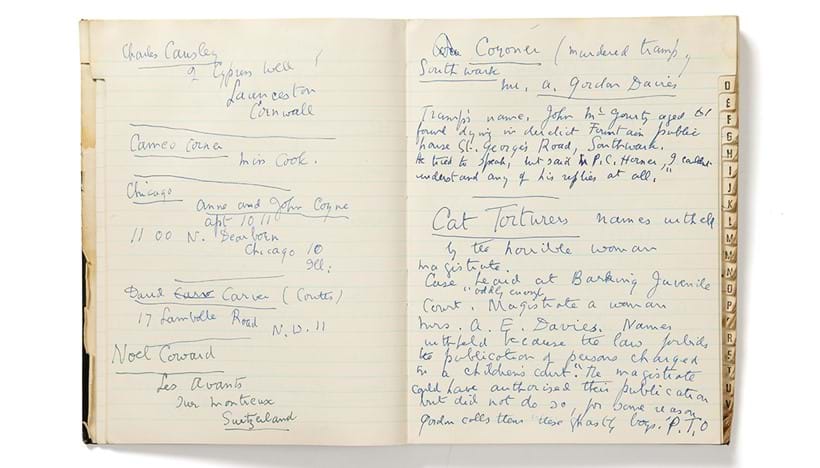 Charles Causley
2 Cypress Well
Launceston
Cornwall
Cameo Corner
Miss Cook.
Chicago
Anne and John Coyne
apt 1011
1100 N. Dearborn
Chicago 10
Ill:
David Carver (Coutts)
17 Lambolle Road
N.W. 11
Noel Coward
Les Avants
sur Montreux
Switzerland
Coroner (murdered tramp)
Southwark
Mr. A. Gordon Davies
Tramp's name. John McGourty aged
found dying in derelict Fountain public
house St. George's Road, Southwark.
He tried to speak, but said P.C. Horner, "I couldn't
understand any of his replies at all."
Cat Torturers names withheld
by the horrible woman
magistrate.
Case heard at Barking Juvenile
Court. "oddly enough Magistrate a woman
Mrs. A. E. Davies. Names
withheld because the law forbids
the publication of persons charged
in a children's court." The magistrate
could have authorised their publication
but did not do so, for some reason
Gordon calls them "these ghastly boys." P.T.O
D
E
F
G
H
I
J
K
L
M
N
O
P
R
S
T
U
V